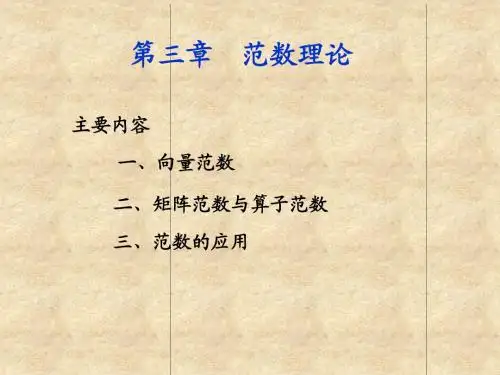 第三章　范数理论
主要内容
一、向量范数
二、矩阵范数与算子范数
三、范数的应用